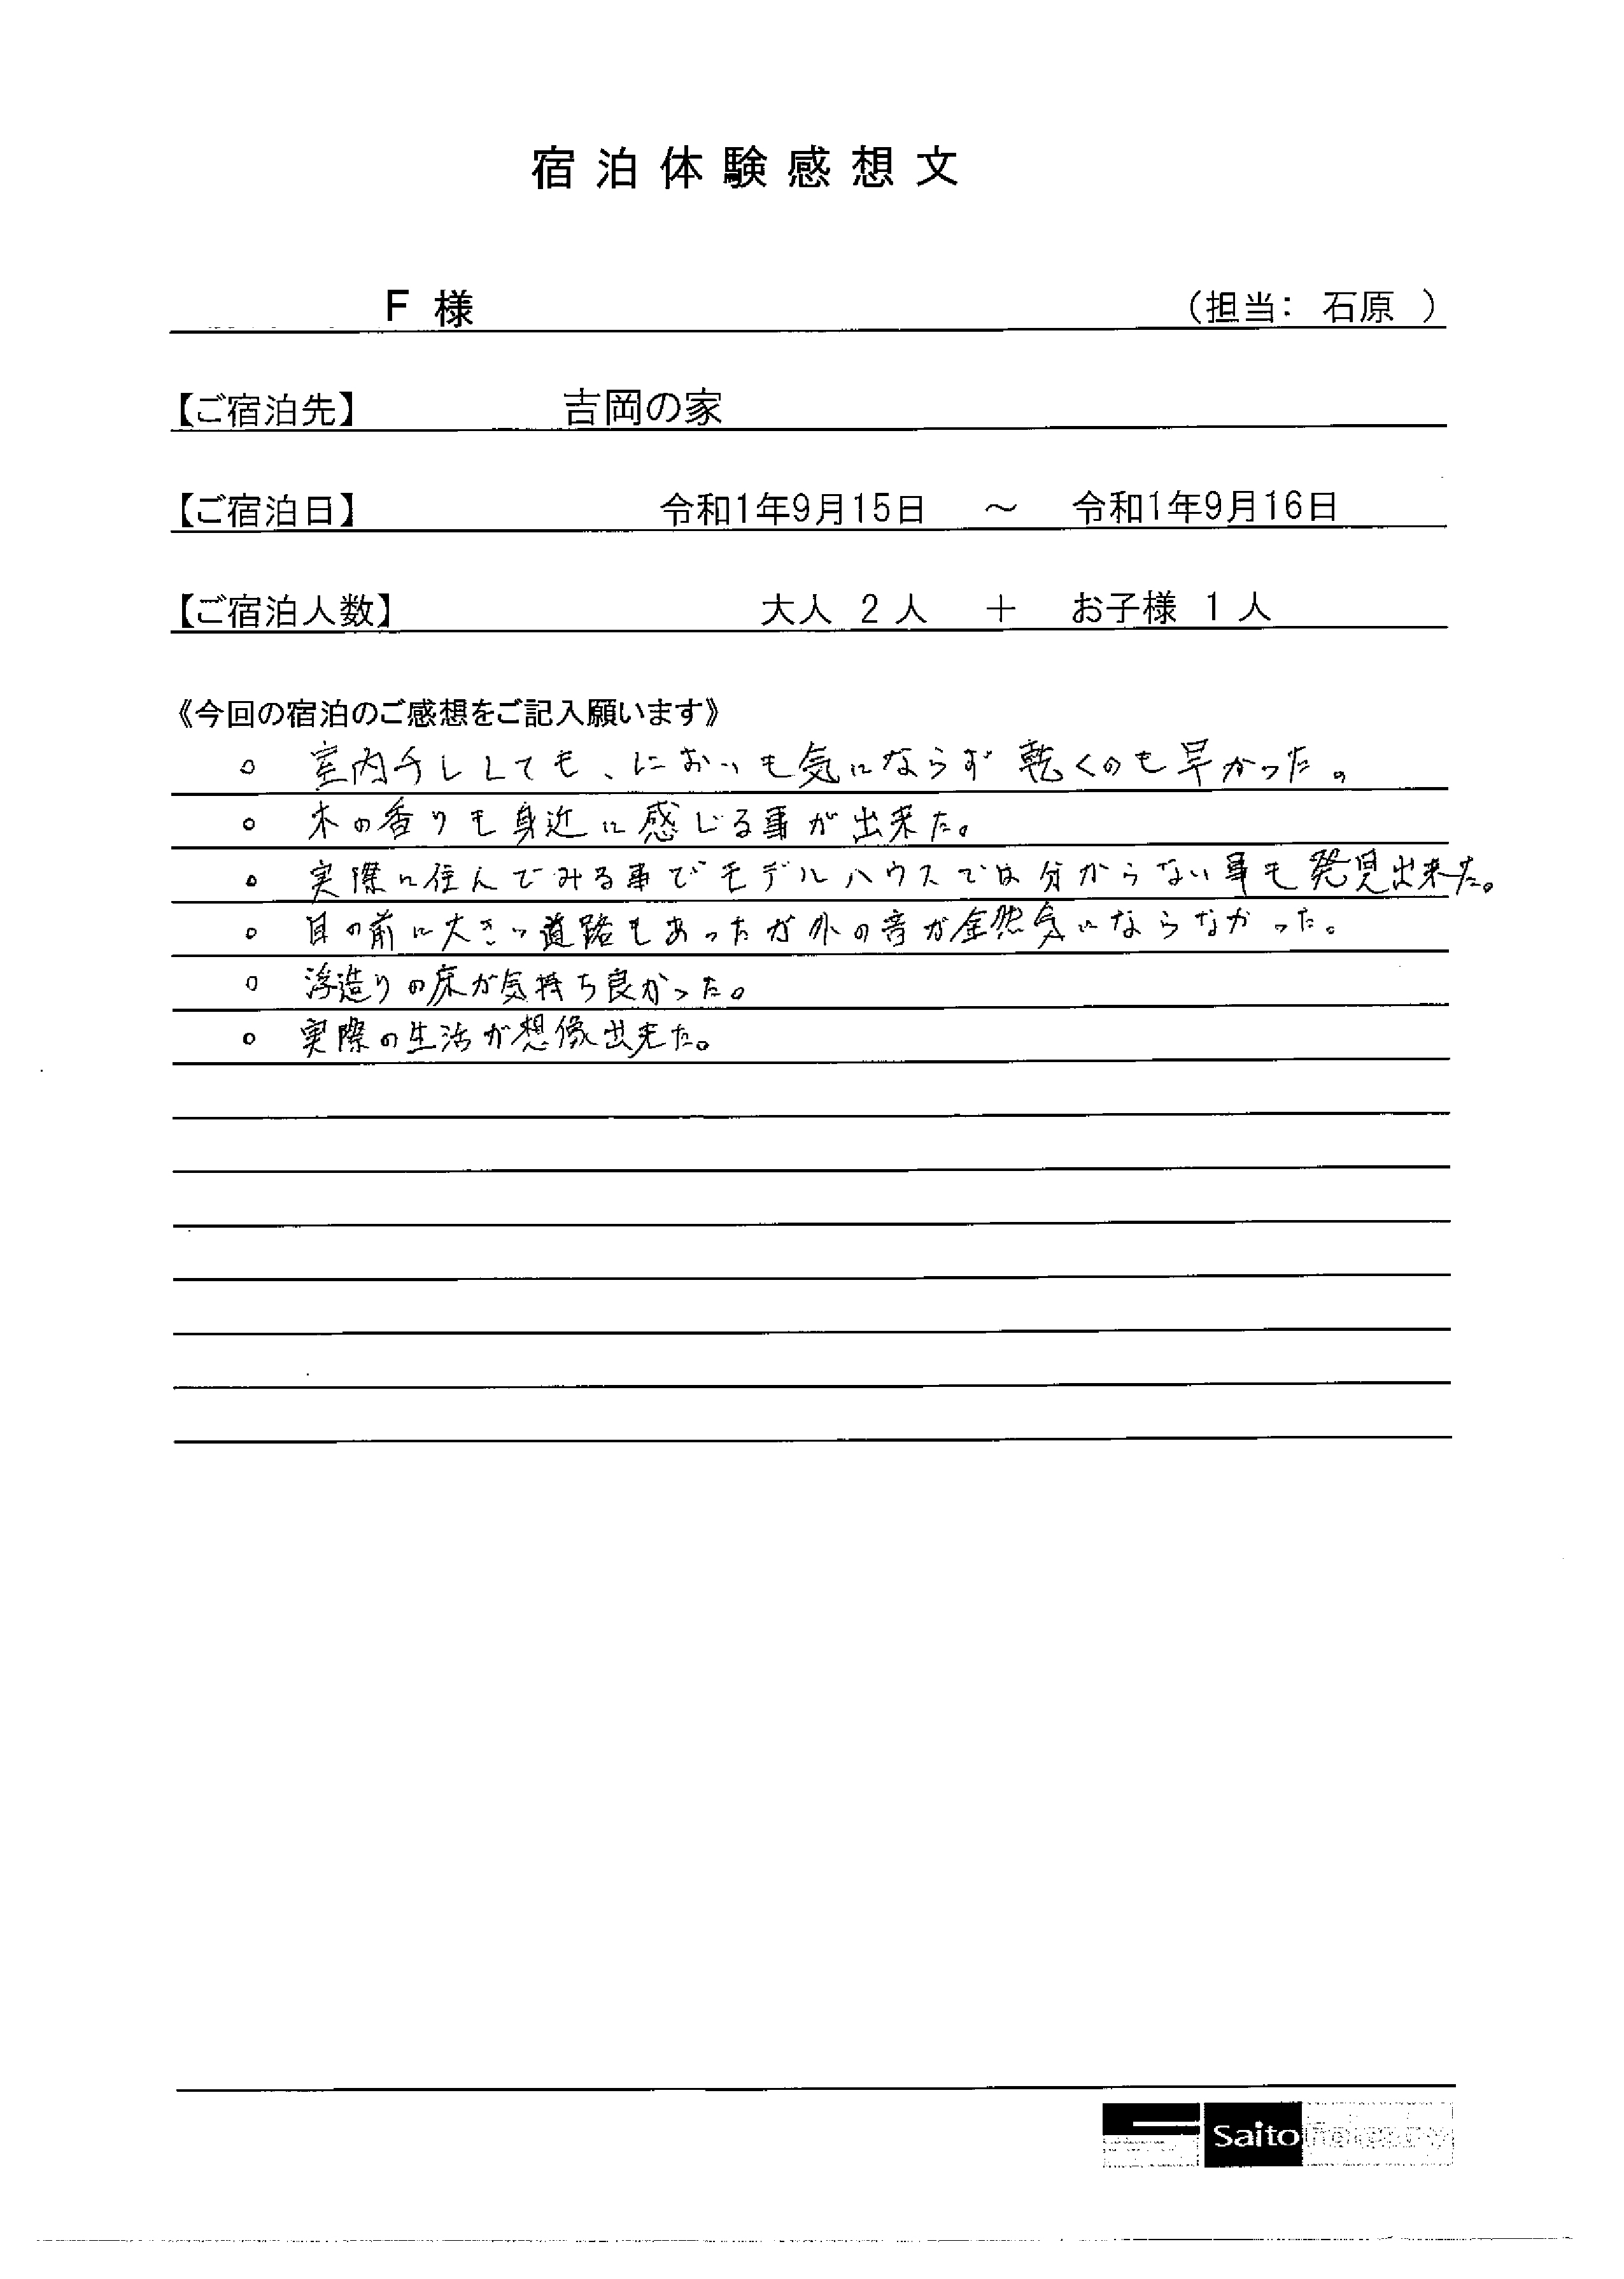 宿泊体験感想文
F 様 （担当： 石原 ）
【ご宿泊先】 吉岡の家
【ご宿泊日】 令和1年9月15日 ～ 令和1年9月16日
【ご宿泊人数】 大人 2 人 ＋ お子様 1 人
《今回の宿泊のご感想をご記入願います》
○ 室内干ししても、においも気にならず乾くのも早かった。
○ 木の香りも身近に感じる事が出来た。
○ 実際に住んでみる事でモデルハウスでは分からない事も発見出来た。
○ 目の前に大きい道路もあったが外の音が全然気にならなかった。
○ 浮造りの床が気持ち良かった。
○ 実際の生活が想像出来た。
Saito